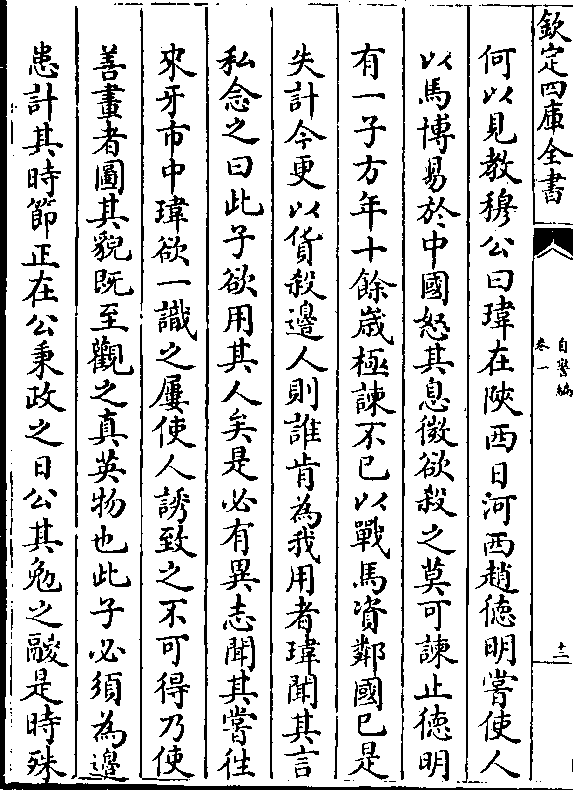 欽定四庫全書
自警編
卷一
十二
何以見教穆公曰瑋在陝西日河西趙徳明嘗使人
以馬博易於中國怒其息微欲殺之莫可諫止徳明
有一子方年十餘歳極諫不已以戰馬資鄰國已是
失計今更以貨殺邊人則誰肯為我用者瑋聞其言
私念之曰此子欲用其人矣是必有異志聞其嘗徃
來牙市中瑋欲一識之屢使人誘致之不可得乃使
善畫者圖其貌既至觀之真英物也此子必須為邊
患計其時節正在公秉政之日公其勉之鬷是時殊